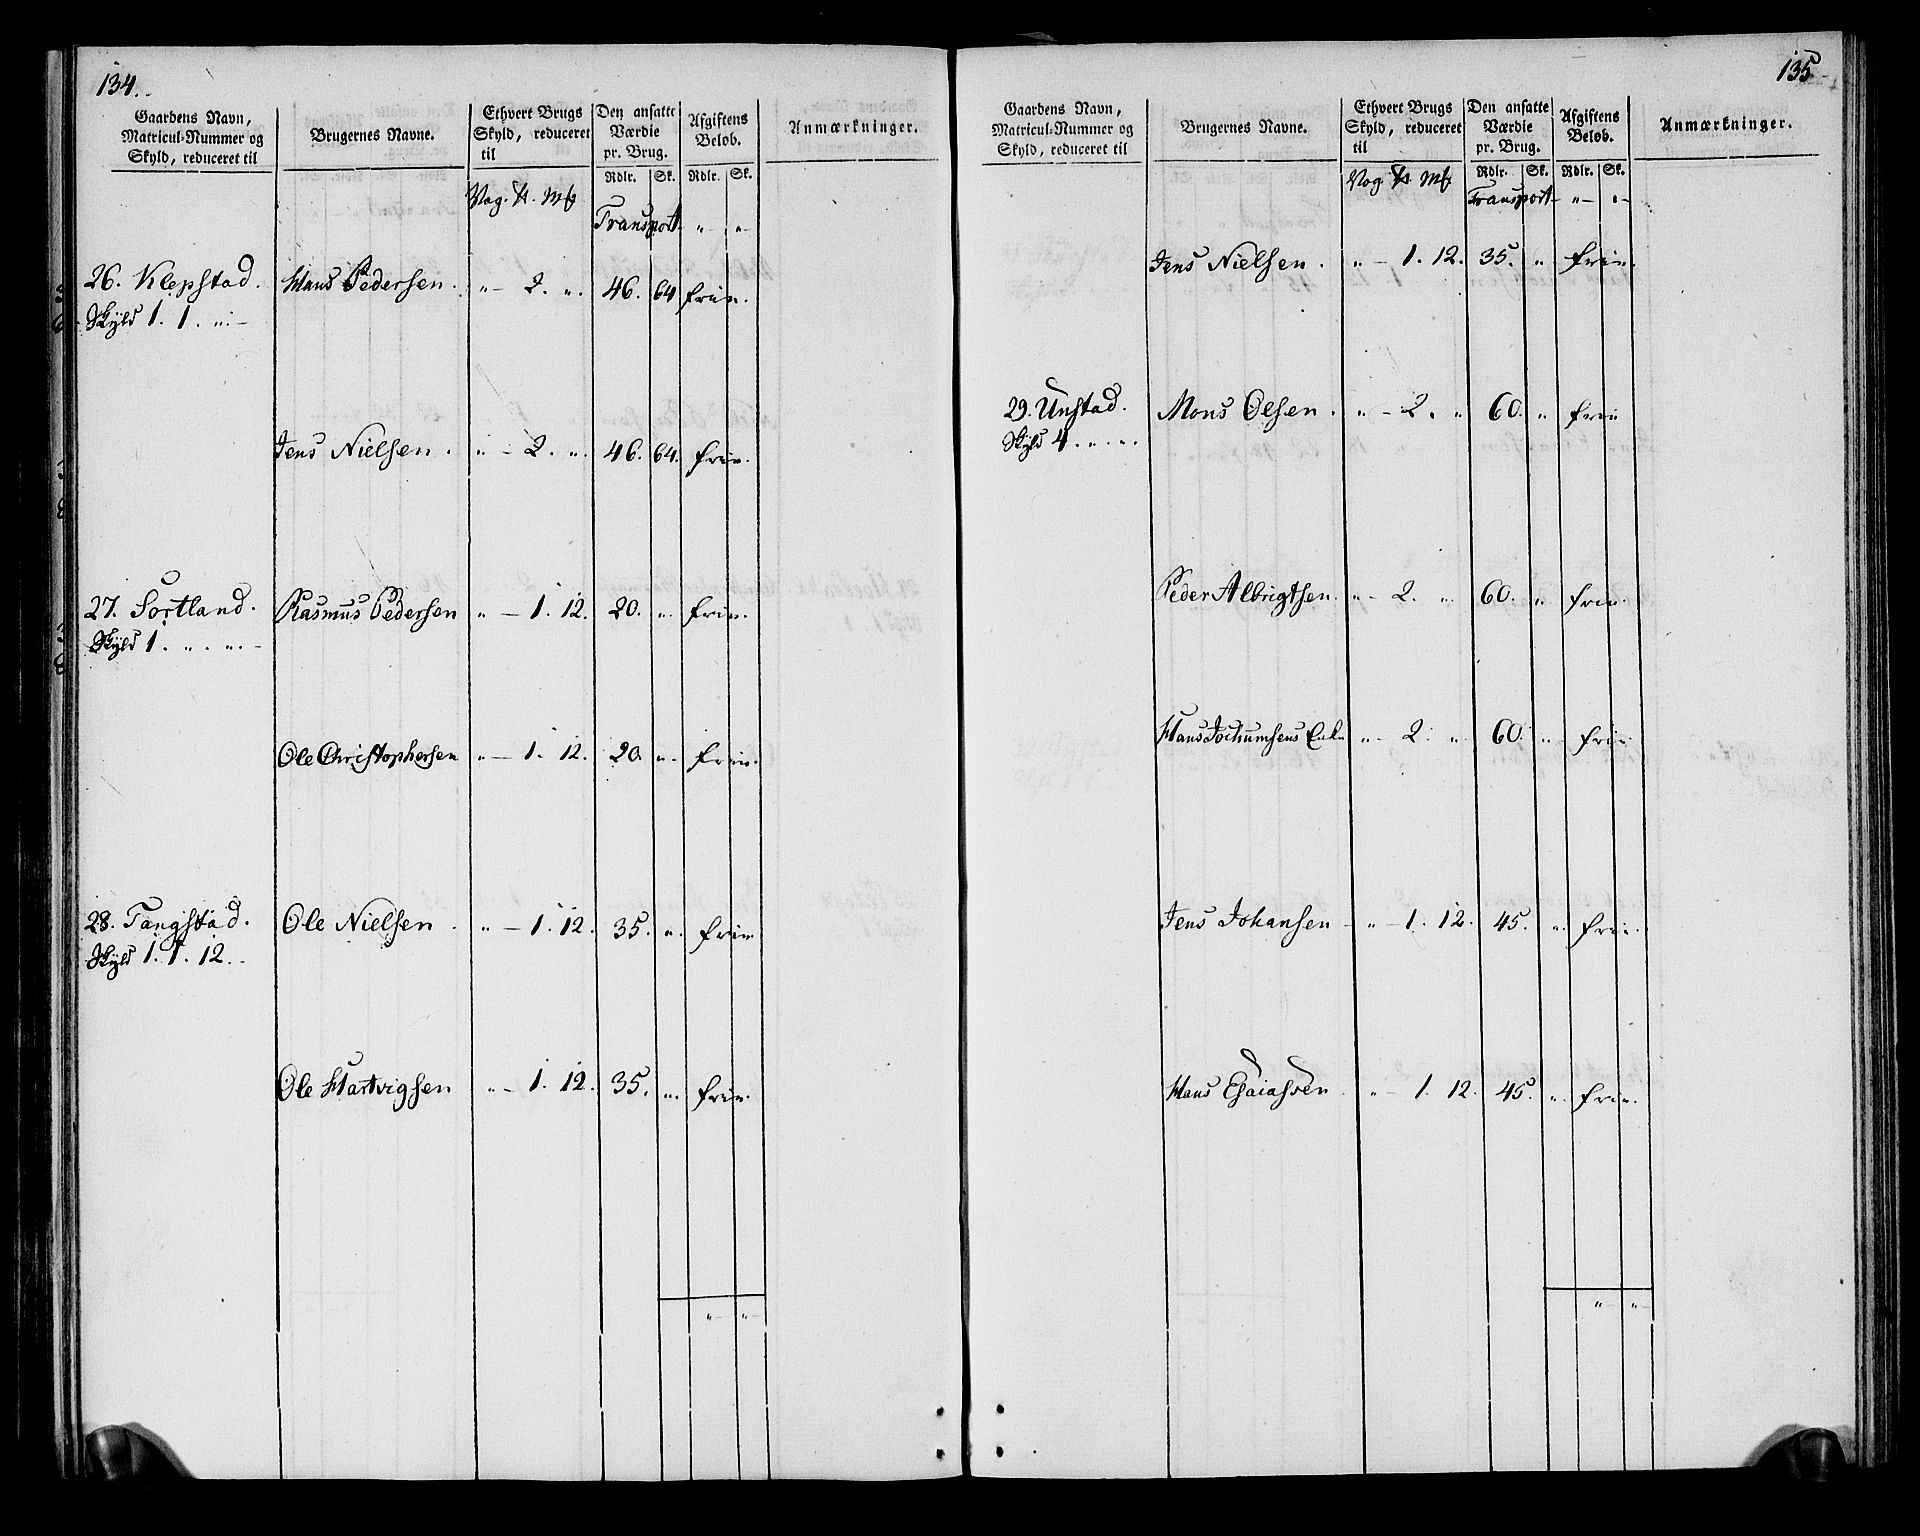 134.
Gaardens Navn, Matricul-Nummer og Skyld, reduceret til
Brugernes Navne.
Ethvert Brugs Skyld, reduceret til
Den ansatte Værdie pr. Brug.
Afgiftens Beløb.
Anmærkninger.
Rdlr. Sk. Rdlr. Sk.
Vog. ℔. Mk
Transport - " "-
26. Klepstad. Hans Pedersen. " - 2. ". 46. 64 frie.
Skyld 1. 1. ".-
Jens Nielsen. " - 2. ". 46. 64. frie.
27. Sortland. Rasmus Pedersen " - 1. 12. 20. ". frie.
Skyld 1. ". ".-
Ole Christophersen " - 1. 12. 20. ". frie.
28. Tangstad. Ole Nielsen. " - 1. 12. 35. ". frie
Skyld 1. 1. 12.-
Ole Hartvigsen " - 1. 12. 35. ". frie.
"- "-
135
Gaardens Navn, Matricul-Nummer og Skyld, reduceret til
Brugernes Navne.
Ethvert Brugs Skyld, reduceret til
Den ansatte Værdie pr. Brug.
Afgiftens Beløb.
Anmærkninger.
Rdlr. Sk. Rdlr. Sk.
Vog. ℔. Mk
Transport- "- "-
Jens Nielsen. " - 1. 12. 35. " frie.
29. Unstad. Mons Olsen. " - 2. " 60. " frie
Skyld 4. ". ".
Peder Albrigtsen. " - 2. " 60. " frie.
Hans Jochumsens Enke " - 2. " 60. " frie
Jens Johansen - " - 1. 12. 45. ". frie.
Hans Esaiassen. " - 1. 12. 45. ". frie.
"- "-